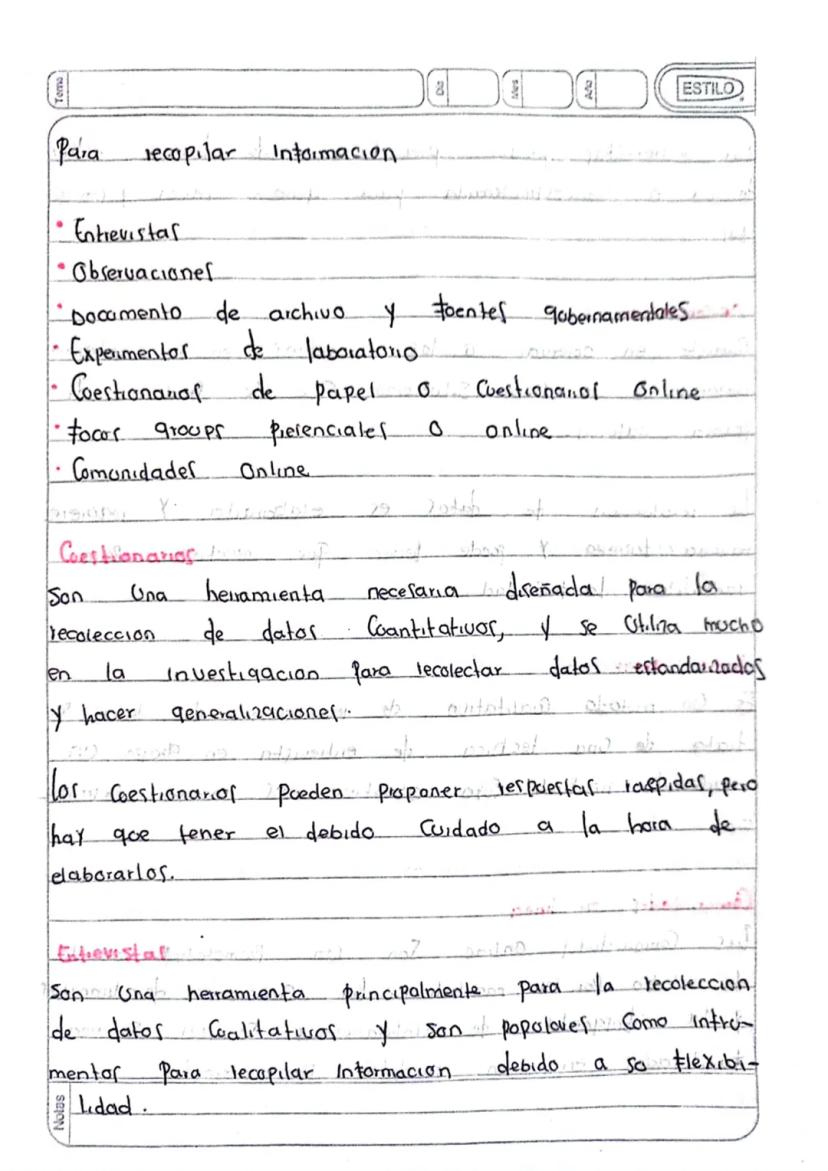 Tema
Dia
Mes
Año
ESTILO
Para recopilar informacion
• Entrevistas
• Observaciones
• Documento de archivo y fuentes gubernamentales
• Experimentos de laboratorio
• Cuestionarios de papel o Cuestionarios Online
• focus groups presenciales o online
• Comunidades Online
Cuestionarios
Son una herramienta necesaria diseñada para la
recoleccion de datos Cuantitativos, y se utiliza mucho
en la investigacion para recolectar datos estandarizados
y hacer generalizaciones.
los Cuestionarios pueden proponer respuestas raepidas, pero
hay que tener el debido Cuidado a la hora de
elaborarlos.
Entrevistas
Son una herramienta principalmente para la recoleccion
de datos Cualitativos y son populares Como intru-
mentos para recopilar informacion debido a su flexibi-
lidad.
Notas